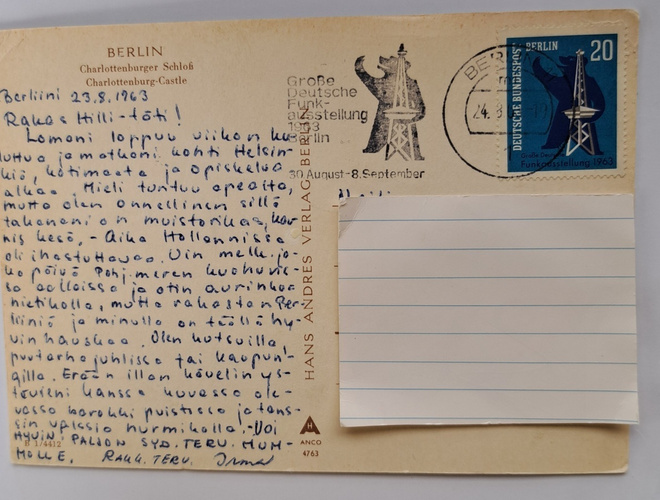 BERLIN
Charlottenburger Schloß
Charlottenburg-Castle
Berliini 23.8.1963
Rakas Hilli-täti!
Lomani loppuu viikon ku-
luttua ja matkani kohti Helsin-
kiä, kotimaata ja opiskelua
alkaa. Mieli tuntuu apealta,
mutta olen onnellinen sillä
takanani on muistorikas, kau-
nis kesä, - Aika Hollannissa
oli ihastuttavaa. Uin melk. jo-
ka päivä Pohj.meren kuohuvis-
sa aalloissa ja otin aurinkoa
hietikolla, mutta rakastan Ber-
liiniä ja minulla on täällä hy-
vin hauskaa. Olen kutsuilla
puutarhajuhlissa tai kaupun-
gilla. Erään illan kävelin ys-
täväni kanssa kuvassa ole-
vassa barokki puistissa ja tans-
sin upeassa nurmikolla. - Voi
HYVIN! PALJON SYD. TERV. MUM-
MOLLE. RAKK. TERV. Irma
H 1/4412
HANS ANDRES VERLAG BERLIN
H
ANCO
4763
Große
Deutsche
Funk-
ausstellung
1963
Berlin
30. August-8. September
BERLIN
24.8
DEUTSCHE BUNDESPOST BERLIN
20
Große Deutsche
Funkausstellung 1963